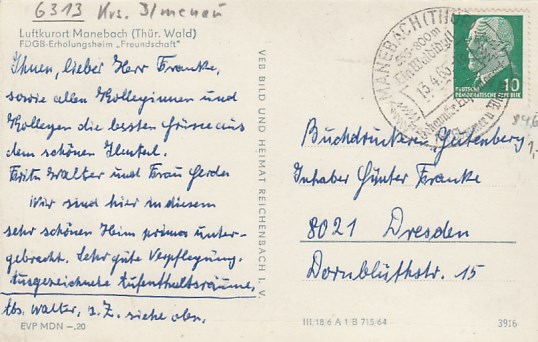 6313 Krs. Ilmenau
Luftkurort Manebach (Thür. Wald)
FDGB-Erholungsheim „Freundschaft"
Ihnen, lieber Herr Franke,
sowie allen Kolleginnen und
Kollegen die besten Grüsse aus
dem schönen Ilmtal.
Fritz Walter und Frau Gerda
Wir sind hier in diesem
sehr schönen Heim prima unter-
gebracht. Sehr gute Verpflegung.
Ausgezeichnete Aufenthaltsräume,
Abs. Walter, z.Z. siehe oben.
EVP MDN –,20
VEB BILD UND HEIMAT REICHENBACH I. V.
MANEBACH (THÜR
15.4.65
DEUTSCHE
DEMOKRATISCHE REPUBLIK
10
Buchdruckerei Gutenberg
Inhaber Günter Franke
8021 Dresden
Dornblüthstr. 15
III/18/6 A 1/B 715/64
3916